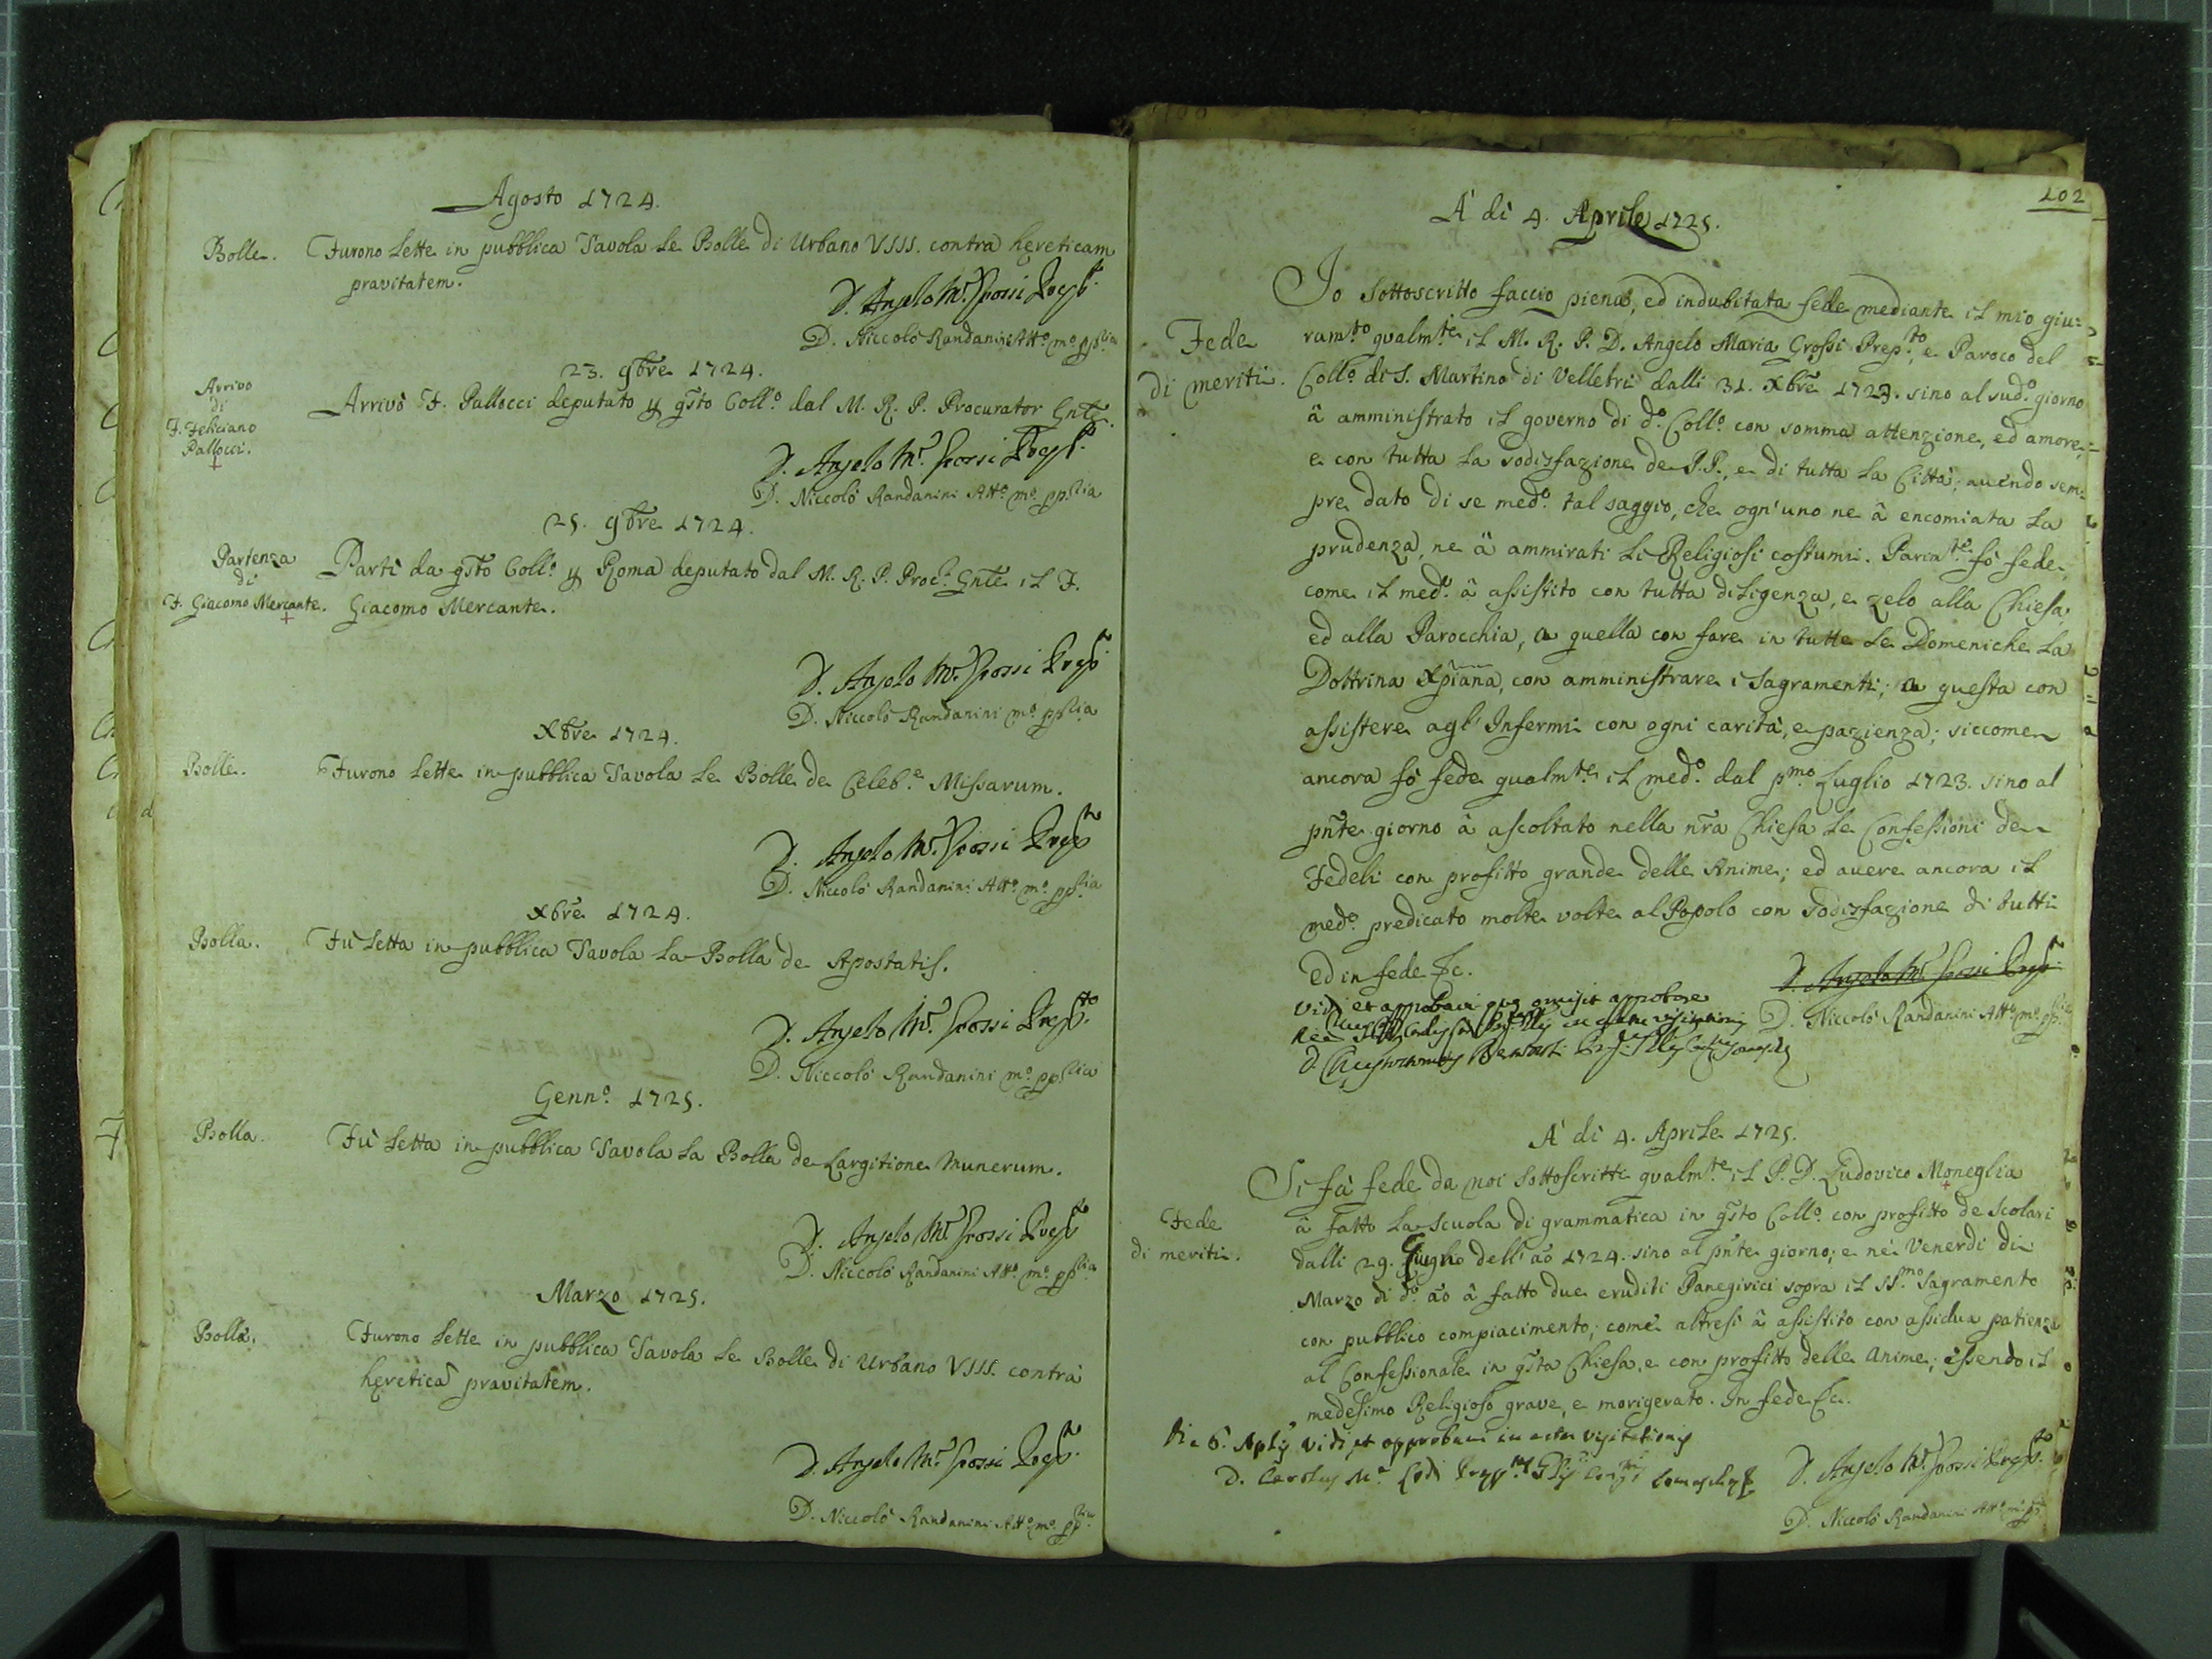 Agosto 1724.
Bolle. Furono lette in pubblica Tavola le Bolle di Urbano VIII. contra hereticam
pravitatem.
D. Angelo Mª Grossi Prepto
D. Niccolò Randanini Atto mo ppria
23. 9bre 1724.
Arrivo
di
F. Feliciano
Pallocci.
Arrivò F. Pallocci deputato p qsto Collo dal M. R. P. Procurator Gnle.
D. Angelo Mª Grossi Prepto
D. Niccolò Randanini Atto mo ppria
25. 9bre 1724.
Partenza
di
F. Giacomo Mercante.
Partì da qsto Collo p Roma deputato dal M. R. P. Proc. Gnle il F.
Giacomo Mercante.
D. Angelo Mª Grossi Prepto
D. Niccolò Randanini mo ppria
Xbre 1724.
Bolle. Furono lette in pubblica Tavola le Bolle de Celebe Missarum.
D. Angelo Mª Grossi Prepto
D. Niccolò Randanini Atto mo ppria
Xbre 1724.
Bolla. Fù letta in pubblica Tavola la Bolla de Apostatis.
D. Angelo Mª Grossi Prepto
D. Niccolò Randanini mo ppria
Genno 1725.
Bolla. Fù letta in pubblica Tavola la Bolla de Largitione Munerum.
D. Angelo Mª Grossi Prepto
D. Niccolò Randanini Atto mo ppria
Marzo 1725.
Bolle. Furono lette in pubblica Tavola le Bolle di Urbano VIII. contra
hereticã pravitatem.
D. Angelo Mª Grossi Prepto
D. Niccolò Randanini Atto mo ppria
102
A' dì 4. Aprile 1725.
Fede
di meriti.
Io sottoscritto faccio piena, ed indubitata fede mediante il mio giu:
ramto qualmte il M. R. P. D. Angelo Maria Grossi Prepto, e Paroco del
Collo di S. Martino di Velletri dalli 31. Xbre 1723. sino al sudo giorno
â amministrato il governo di do Collo con somma attenzione, ed amore,
e con tutta la sodisfazione de P.P., e di tutta la Città; avendo sem:
pre dato di se medo tal saggio, che ogn'uno ne â encomiata la
prudenza, ne â ammirati li Religiosi costumi. Parimte fò fede,
come il medo â assistito con tutta diligenza, e zelo alla Chiesa,
ed alla Parocchia, a quella con fare in tutte le Domeniche la
Dottrina Xpiana, con amministrare i Sagramenti; a questa con
assistere agl'Infermi con ogni carità, e pazienza; siccome
ancora fò fede qualmte il medo dal pmo Luglio 1723. sino al
pnte giorno â ascoltato nella nra Chiesa le Confessioni de
Fedeli con profitto grande delle Anime; ed avere ancora il
medo predicato molte volte al Popolo con sodisfazione di tutti
Ed in fede &c.
D. Angelo Mª Grossi Prepto
Vidi et approbavi omisit approbare
D. Niccolò Randanini Atto mo ppria
A' dì 4. Aprile 1725.
Fede
di meriti.
Si fà fede da noi sottoscritti qualmte il P. D. Ludovico Moneglia
â fatto la scuola di grammatica in qsto Collo con profitto de scolari
dalli 29. Giugno dell'ão 1724. sino al pnte giorno; e nei Venerdì di
Marzo di do ão â fatto due eruditi Panegirici sopra il SSmo Sagramento
con pubblico compiacimento; come altresì â assistito con assidua patienza
al Confessionale in qsta Chiesa, e con profitto delle Anime; essendo il
medesimo Religioso grave, e morigerato. In fede &c.
Die 6. Aplis vidi, et approbavi in actu visitationis
D. Carolus Mª Lodi
D. Angelo Mª Grossi Prepto
D. Niccolò Randanini Atto mo ppria